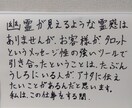 幽霊が見えるような霊能は
ありませんが、お客様がタロット
というメッセージ性の強いツールで
引き合ったということは、たぶん
うしろにいる人がアナタに伝え
たいことがあるんだと思います。
私は、この仕事をする間